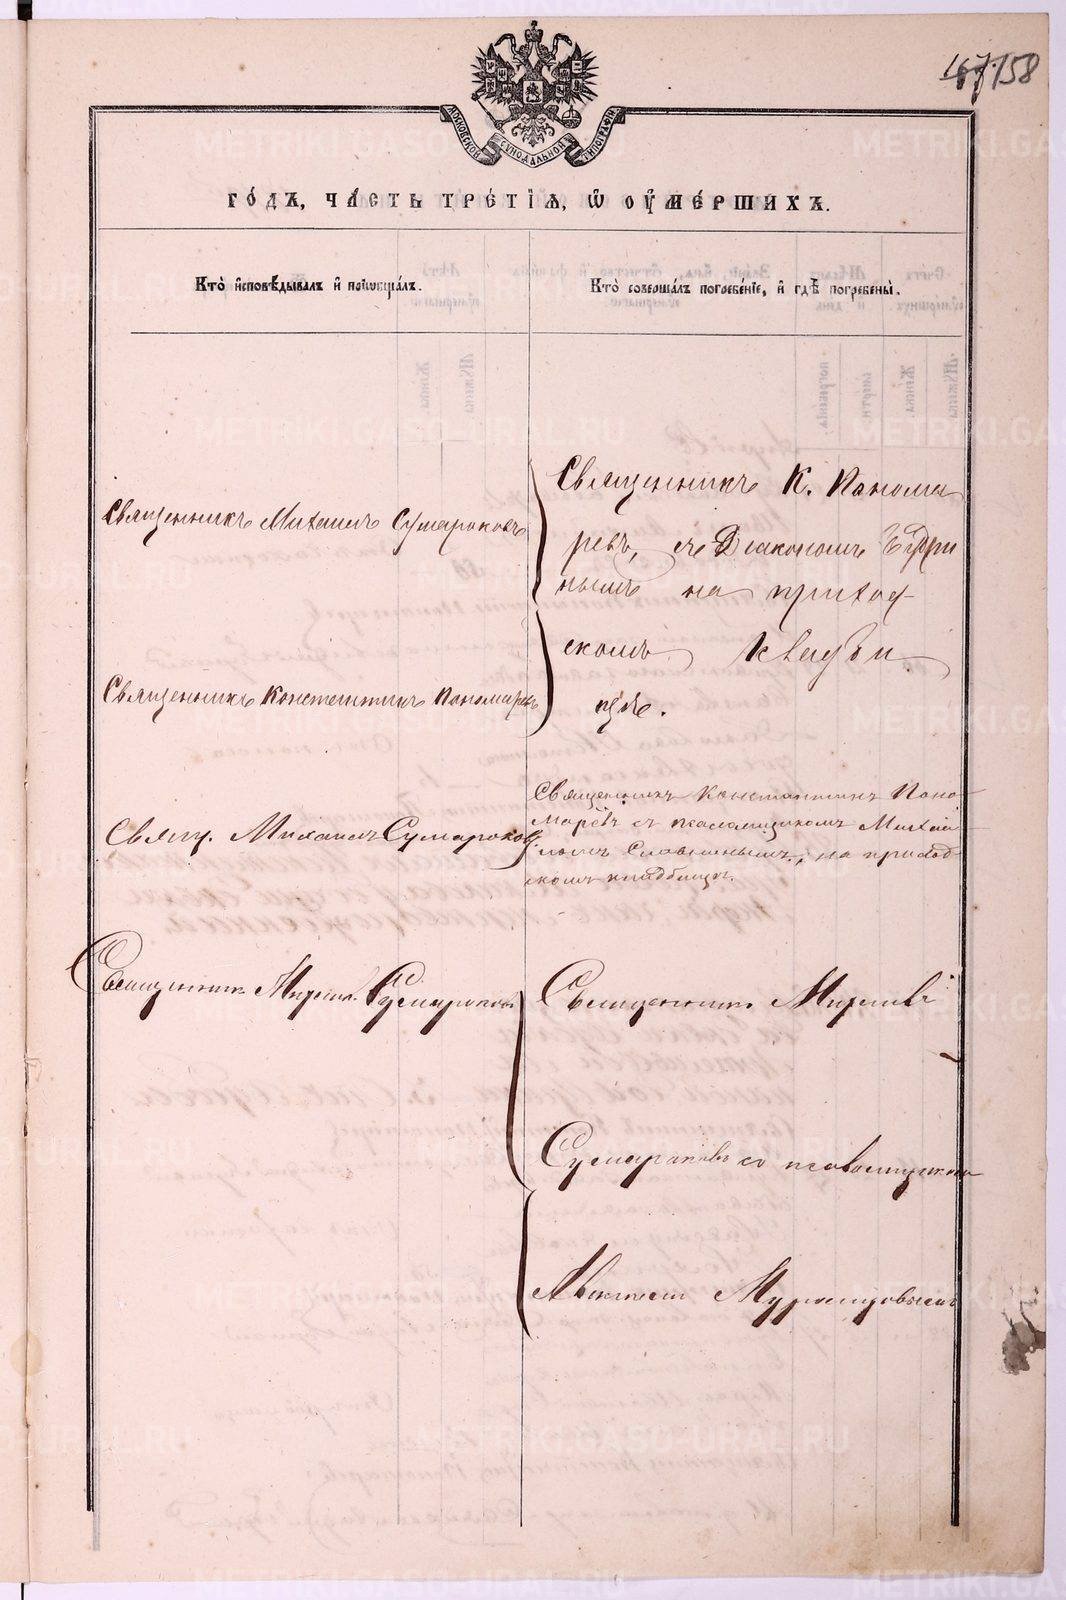 158
МОСКОВСКОЙ СѴНОДАЛЬНОЙ ТИПОГРАФІИ
ГОДЪ, ЧАСТЬ ТРЕТІѦ, Ѡ ОУМЕРШИХЪ.
Кто исповѣдывалъ и пріобщалъ.
Кто совершалъ погребеніе, и гдѣ погребены.
Священникъ Михаилъ Сумароковъ
Священникъ К. Панома
ревъ, съ Діакономъ
нымъ на приход
скомъ кладби
щѣ.
Священникъ Константинъ Пономаревъ
Свящ. Михаилъ Сумароковъ
Священникъ Константинъ Поно
маревъ съ псаломщикомъ Михаи
ломъ Славнинымъ, на приход
скомъ кладбищѣ.
Священникъ Михаилъ Сумароковъ
Священникъ Михаилъ
Сумароковъ со псаломщикомъ
Мурзицовымъ
METRIKI.GASO-URAL.RU